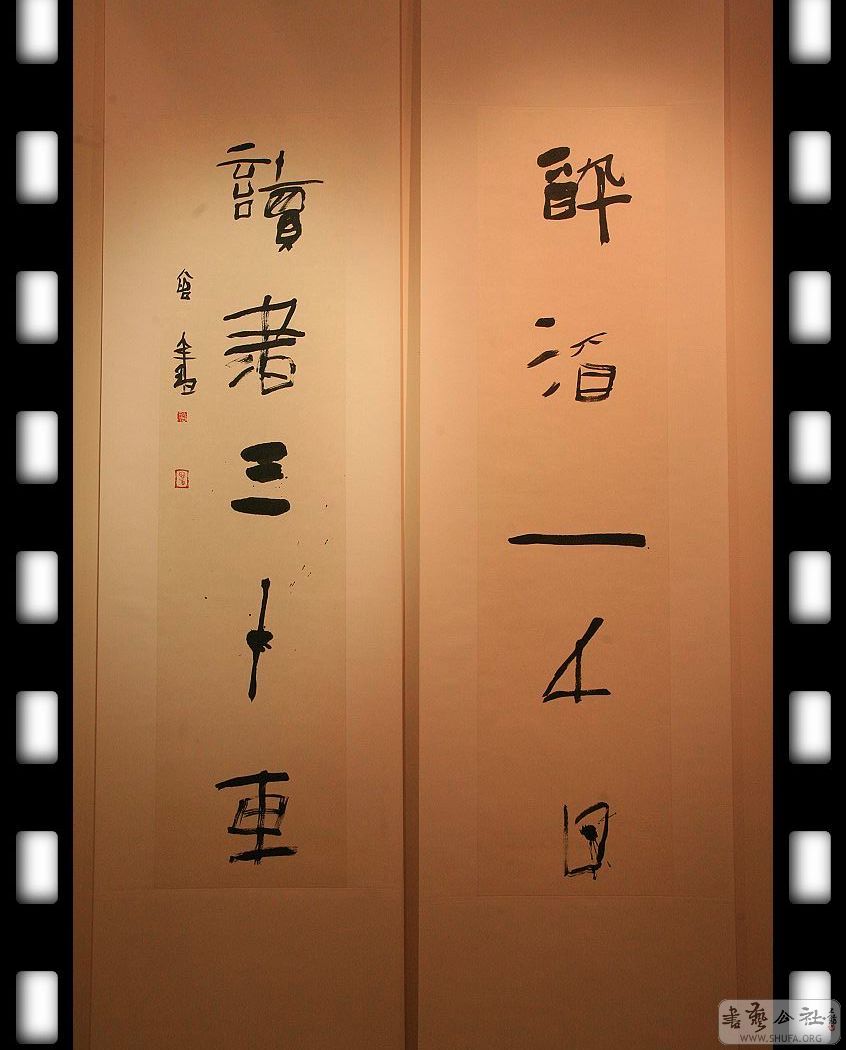 醉酒一千日
讀書三十車
書藝公社
WWW.SHUFA.ORG